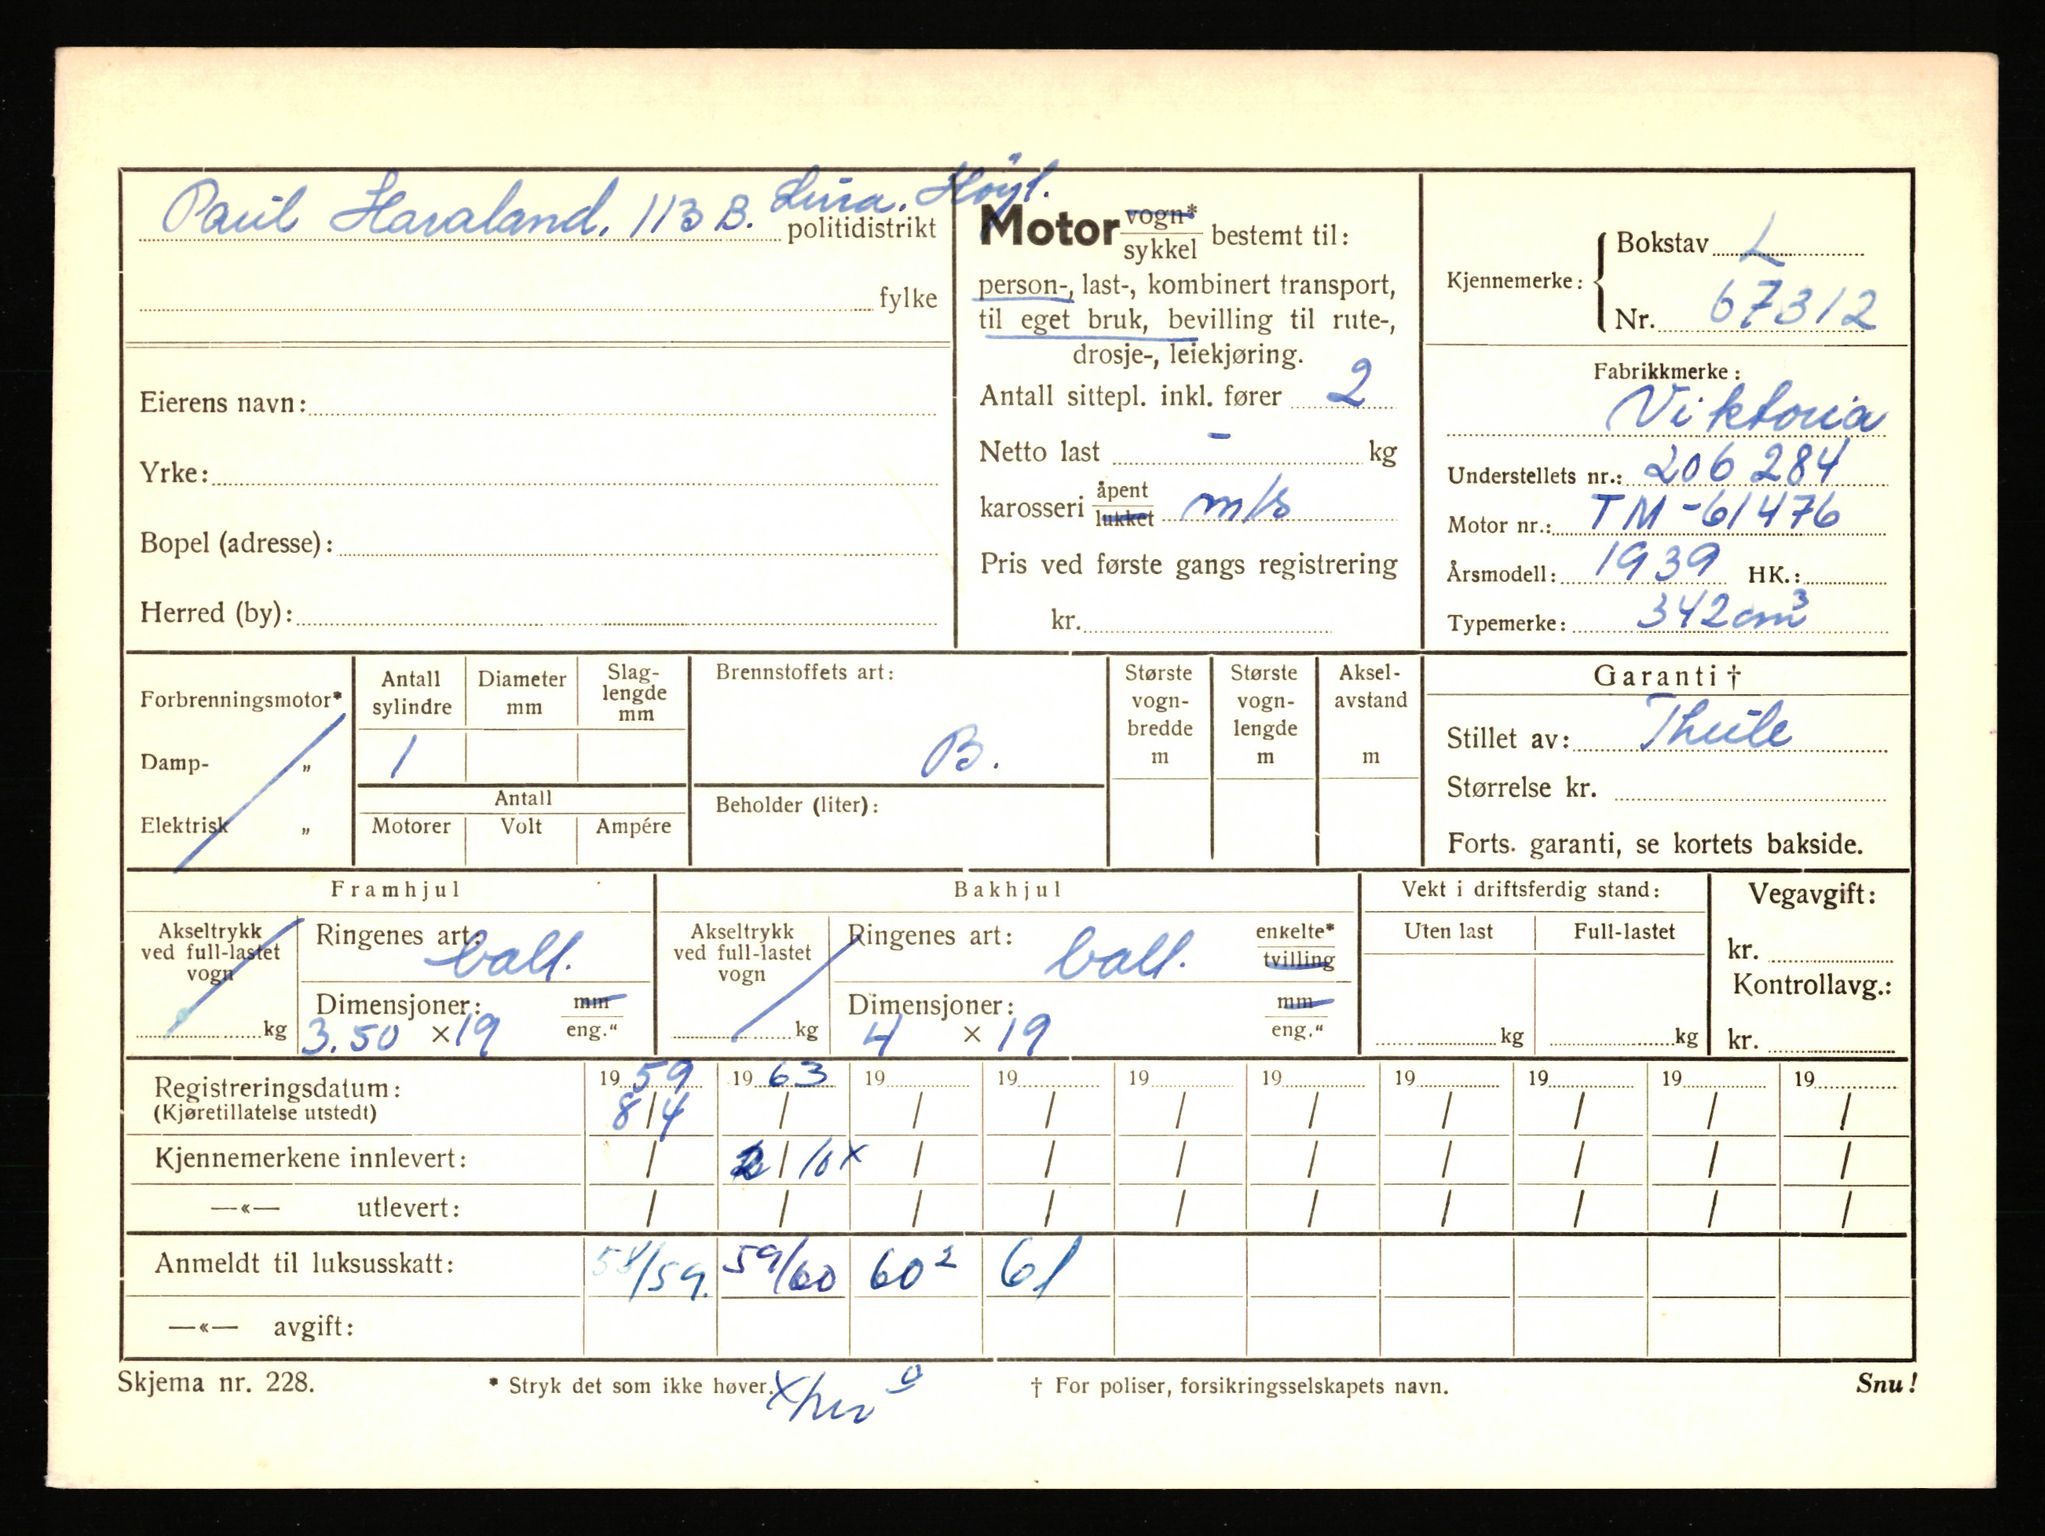 Paul Havaland. 113 B. Lura. Høyl. politidistrikt
fylke
Eierens navn:
Yrke:
Bopel (adresse):
Herred (by):
Motor vogn* sykkel bestemt til:
person-, last-, kombinert transport,
til eget bruk, bevilling til rute-,
drosje-, leiekjøring.
Antall sittepl. inkl. fører 2
Netto last - kg
karosseri åpent lukket m/s
Pris ved første gangs registrering
kr.
Kjennemerke: Bokstav L
Nr. 67312
Fabrikkmerke:
Viktoria
Understellets nr.: 206 284
Motor nr.: TM-61476
Årsmodell: 1939 HK.:
Typemerke: 342 cm³
Forbrenningsmotor*
Damp- „
Elektrisk „
Antall sylindre
Diameter mm
Slag-
lengde
mm
1
Antall
Motorer Volt Ampére
Brennstoffets art:
B.
Beholder (liter):
Største
vogn-
bredde
m
Største
vogn-
lengde
m
Aksel-
avstand
m
Garanti †
Stillet av: Thule
Størrelse kr.
Forts. garanti, se kortets bakside.
Framhjul
Akseltrykk
ved full-lastet
vogn
kg
Ringenes art: ball.
Dimensjoner: mm eng."
3.50 × 19
Bakhjul
Akseltrykk
ved full-lastet
vogn
kg
Ringenes art: ball. enkelte* tvilling
Dimensjoner: mm eng."
4 × 19
Vekt i driftsferdig stand:
Uten last Full-lastet
kg kg
Vegavgift:
kr.
Kontrollavg.:
kr.
Registreringsdatum: 1959 1963 19 19 19 19 19 19 19 19
(Kjøretillatelse utstedt) 8/4 / / / / / / / / /
Kjennemerkene innlevert: / 2/10 x / / / / / / / /
—«— utlevert: / / / / / / / / / /
Anmeldt til luksusskatt: 58/59. 59/60 60² 61
—«— avgift:
Skjema nr. 228. * Stryk det som ikke høver. † For poliser, forsikringsselskapets navn. Snu!